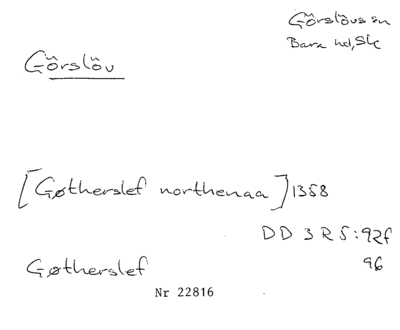 Görslövs sn
Bara hd, Sk
Görslöv
[Gøtherslef northenaa] 1358
DD 3 R 5:92f
Gøtherslef 96
Nr 22816